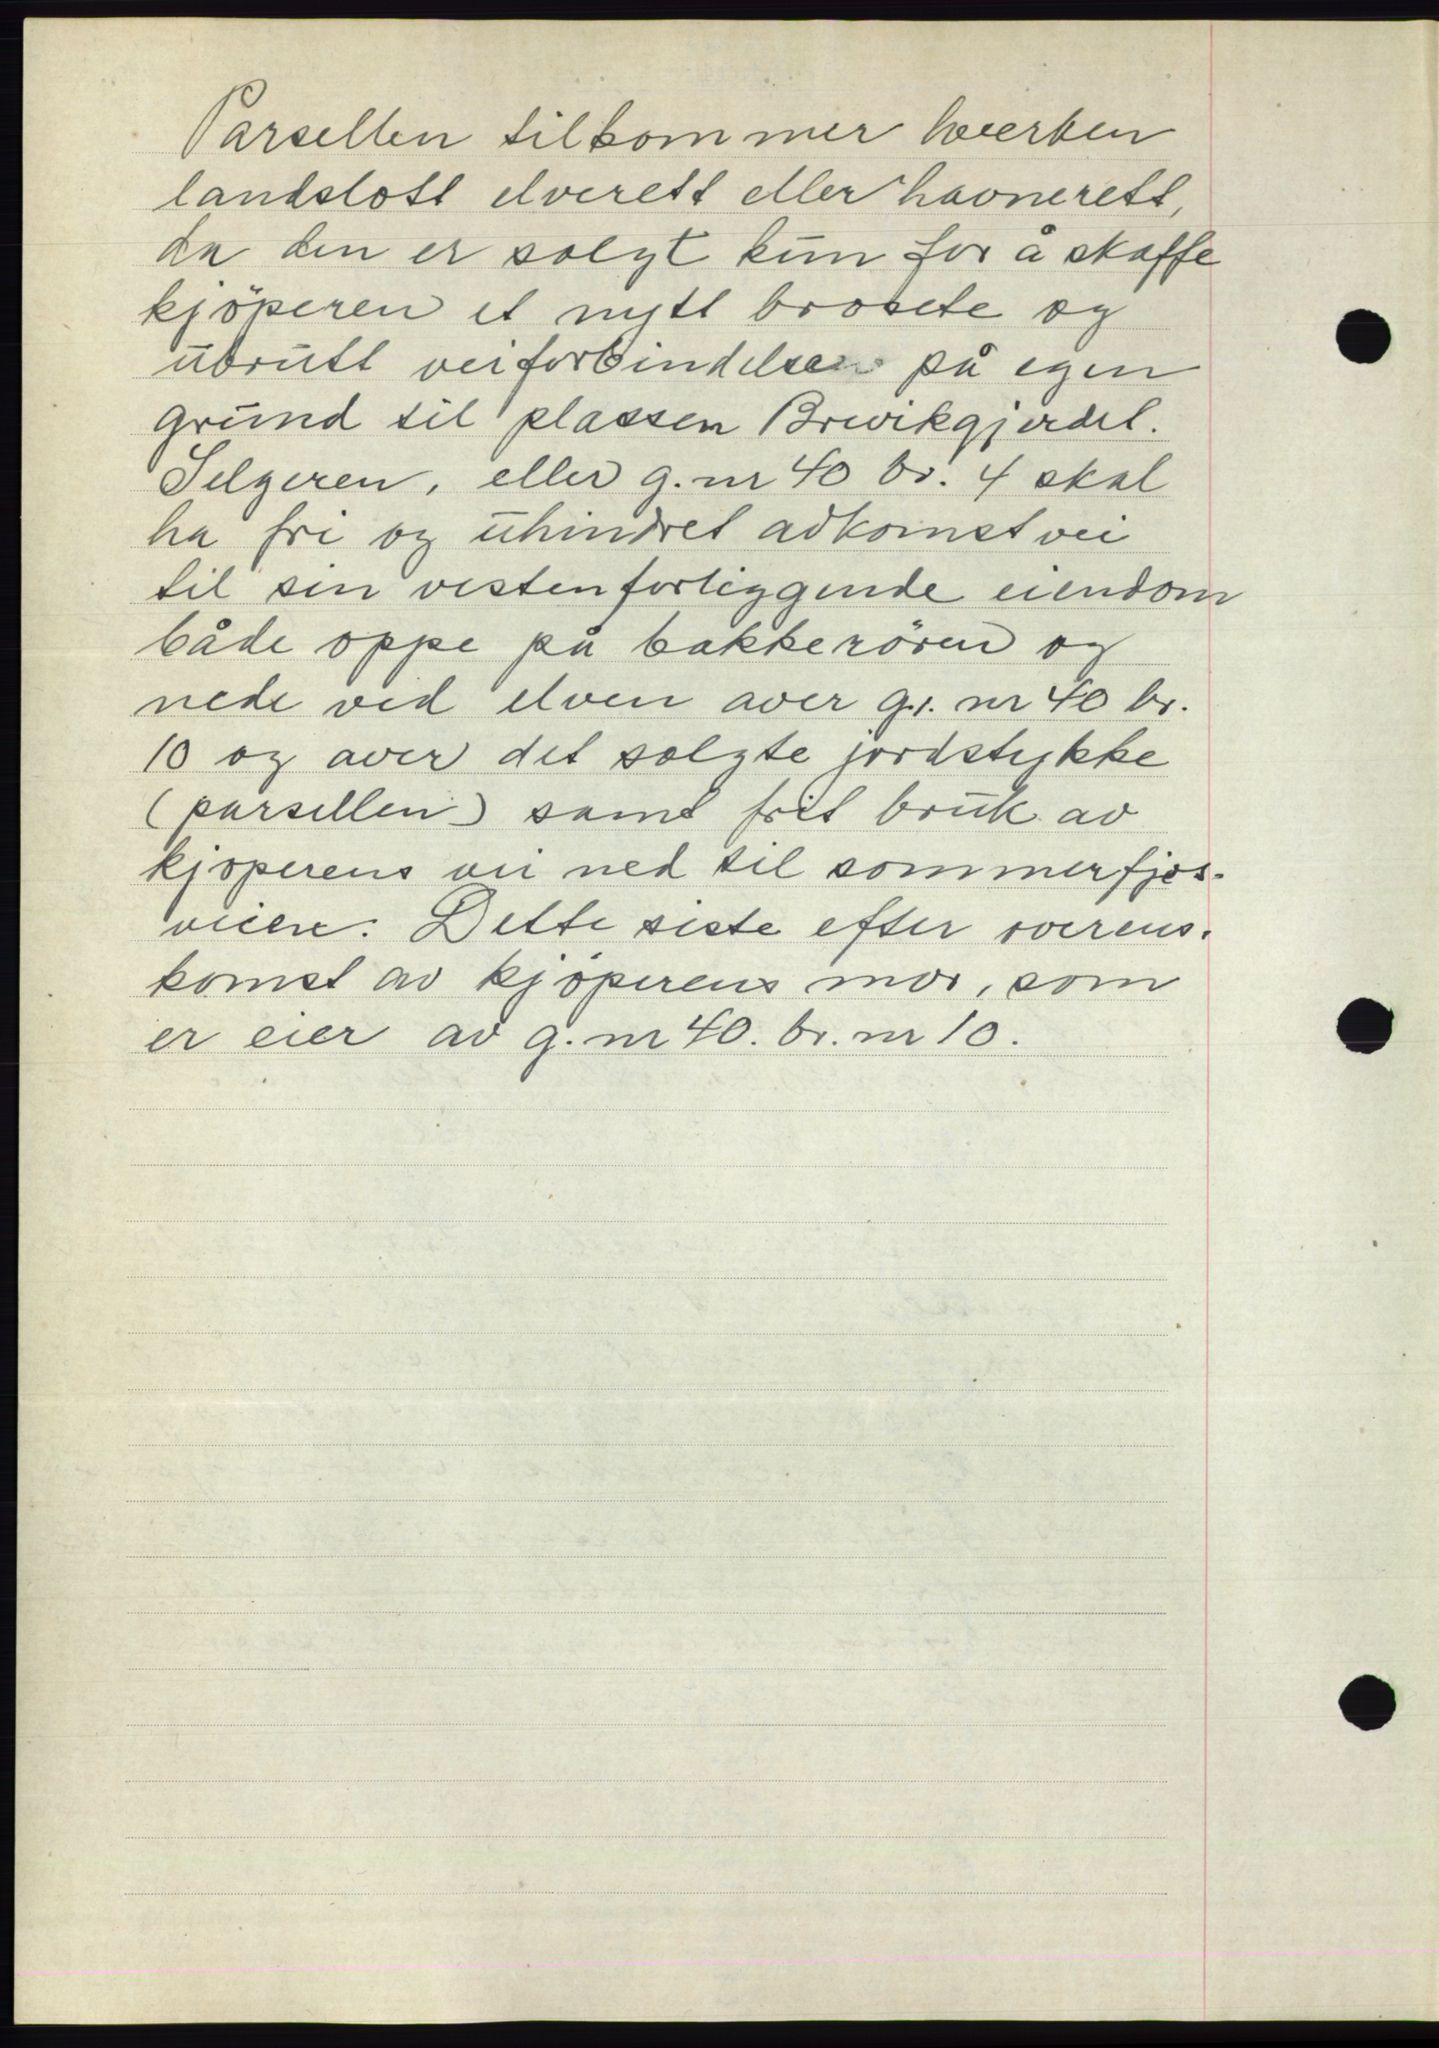 Parsellen tilkommer hverken
landslott elverett eller havnerett,
da den er solgt kun for å skaffe
kjöperen et nytt brosete og
ubrutt veiforbindelse på egen
grund til plassen Brevikgjerdet.
Selgeren, eller g.nr 40 br. 4 skal
ha fri og uhindret adkomstvei
til sin vestenforliggende eiendom
både oppe på bakkerören og
nede ved elven over g. nr 40 br.
10 og over det solgte jordstykke
(parsellen) samt frit bruk av
kjøperens vei ned til sommerfjøs-
veien. Dette siste efter overens-
komst av kjöperens mor, som
er eier av g. nr 40. br. nr 10.